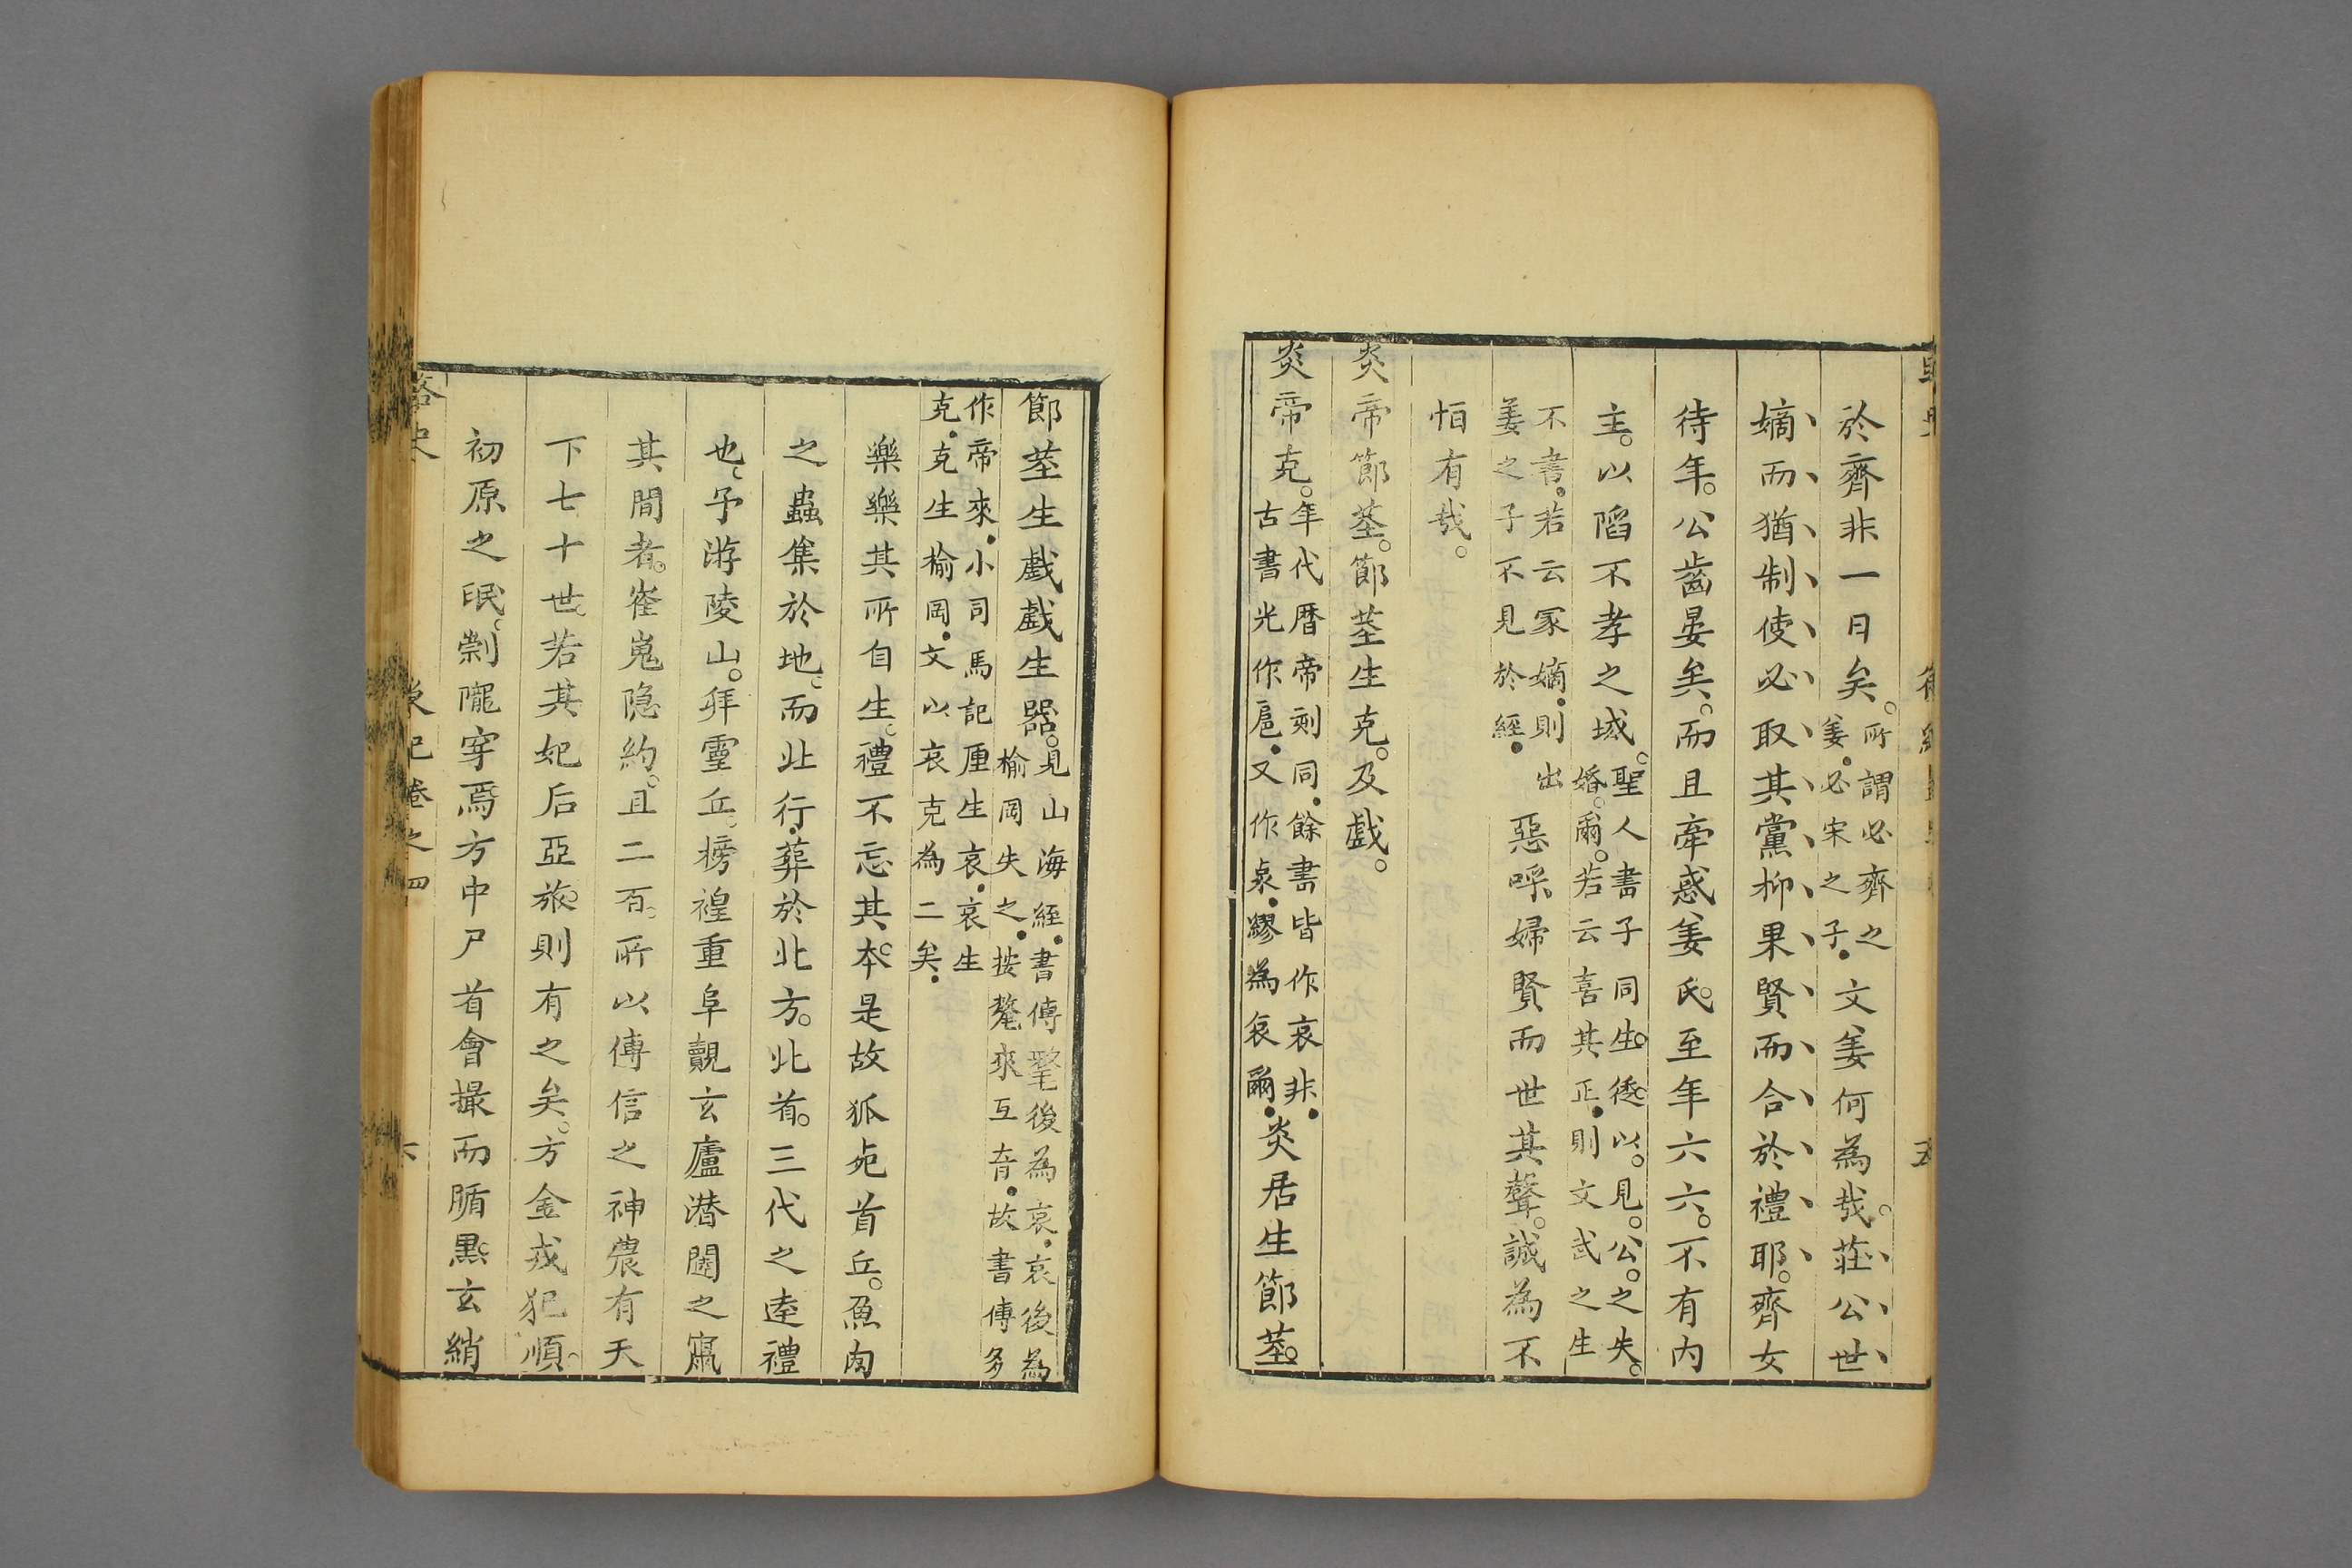 於齊非一日矣。所謂必齊之姜。必宋之子。文姜何為哉。莊公世
嫡而猶制使必取其黨抑果賢而合於禮耶。齊女
待年。公齒晏矣。而且牽惑姜氏。至年六六。不有內
主。以䧟不孝之域。聖人書子同生。後以。見。公。之失。婚。爾。若云喜其正。則文武之生
不書。若云冢嫡。則出姜之子不見於經。惡嘑婦賢而世其聲。誠為不
怕有哉。
炎帝節莖。節莖生克。及戲。
炎帝克。年代曆帝刻同。餘書皆作哀非。古書光作扈。又作㝸。繆為衮爾。炎居生節莖。
節莖生戲戲生器。見山海經。書傳氂後為哀。哀後為榆岡失之。按釐來互音。故書傳多
作帝來。小司馬記厘生哀。哀生克。克生榆岡。文以哀克為二矣。
樂樂其所自生。禮不忘其本。是故狐死首丘。魚肉
之蟲集於地。而北行。葬於北方。北首。三代之達禮
也。予游陵山。拜靈丘。榜徨重阜覿玄廬潛閟之竁
其間者。崔嵬隐約。且二百。所以傳信之神農有天
下七十世。若其妃后亞旅。則有之矣。方金戎犯順。
初原之氓。剃隴穿焉方中尸首會撮而腯黑。玄綃
路史
後紀卷之四
六